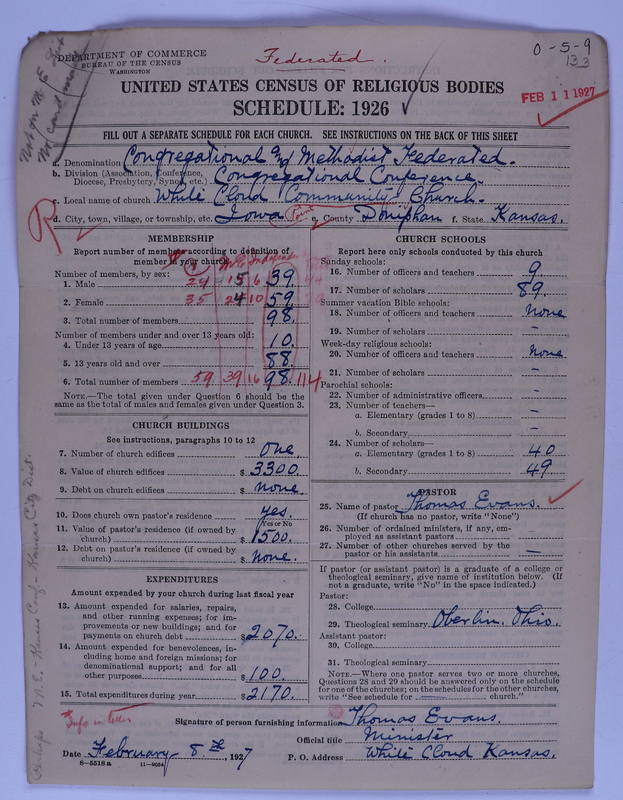 DEPARTMENT OF COMMERCE
BUREAU OF THE CENSUS
WASHINGTON
Federated.
0-5-9
133
Not on M.E.
UNITED STATES CENSUS OF RELIGIOUS BODIES
SCHEDULE: 1926
FEB 11 1927
FILL OUT A SEPARATE SCHEDULE FOR EACH CHURCH. SEE INSTRUCTIONS ON THE BACK OF THIS SHEET
a. Denomination Congregational and Methodist Federated.
b. Division (Association, Conference,
Diocese, Presbytery, Synod, etc.) Congregational Conference.
c. Local name of church White Cloud Community Church.
d. City, town, village, or township, etc. Iowa e. County Doniphan f. State Kansas.
R
MEMBERSHIP
Report number of members according to definition of
member in your church
Number of members, by sex:
1. Male 24 15 6 39.
2. Female 35 24 10 59
3. Total number of members 98.
Number of members under and over 13 years old:
4. Under 13 years of age 10.
5. 13 years old and over 88.
6. Total number of members 59 39 16 98. 114
NOTE.—The total given under Question 6 should be
same as the total of males and females given under Question 3.
CHURCH BUILDINGS
See instructions, paragraphs 10 to 12
7. Number of church edifices One.
8. Value of church edifices $ 3300.
9. Debt on church edifices $ none.
10. Does church own pastor's residence yes.
(Yes or No)
11. Value of pastor's residence (if owned by
church) $ 1500.
12. Debt on pastor's residence (if owned by
church) $ none.
EXPENDITURES
Amount expended by your church during last fiscal year
13. Amount expended for salaries, repairs,
and other running expenses; for im-
provements or new buildings; and for
payments on church debt $ 2070.
14. Amount expended for benevolences, in-
cluding home and foreign missions; for
denominational support; and for all
other purposes $ 100.
15. Total expenditures during year $ 2170.
CHURCH SCHOOLS
Report here only schools conducted by this church
Sunday schools:
16. Number of officers and teachers 9.
17. Number of scholars 89.
Summer vacation Bible schools:
18. Number of officers and teachers none
19. Number of scholars –
Week-day religious schools:
20. Number of officers and teachers none
21. Number of scholars –
Parochial schools:
22. Number of administrative officers –
23. Number of teachers—
a. Elementary (grades 1 to 8) –
b. Secondary –
24. Number of scholars—
a. Elementary (grades 1 to 8) 40
b. Secondary 49
PASTOR
25. Name of pastor Thomas Evans.
(If church has no pastor, write "None")
26. Number of ordained ministers, if any, em-
ployed as assistant pastors
27. Number of other churches served by the
pastor or his assistants –
If pastor (or assistant pastor) is a graduate of a college or
theological seminary, give name of institution below. (If
not a graduate, write "No" in the space indicated.)
Pastor:
28. College
29. Theological seminary Oberlin. Ohio.
Assistant pastor:
30. College
31. Theological seminary
NOTE.—Where one pastor serves two or more churches,
Questions 28 and 29 should be answered only on the schedule
for one of the churches; on the schedules for the other churches,
write "See schedule for church."
Info in letter
Signature of person furnishing information Thomas Evans.
Official title Minister
Date February 8th, 1927 P. O. Address White Cloud Kansas.
8-5518a 11-9054
M.E. - Kansas Conf. - Kansas City Dist.